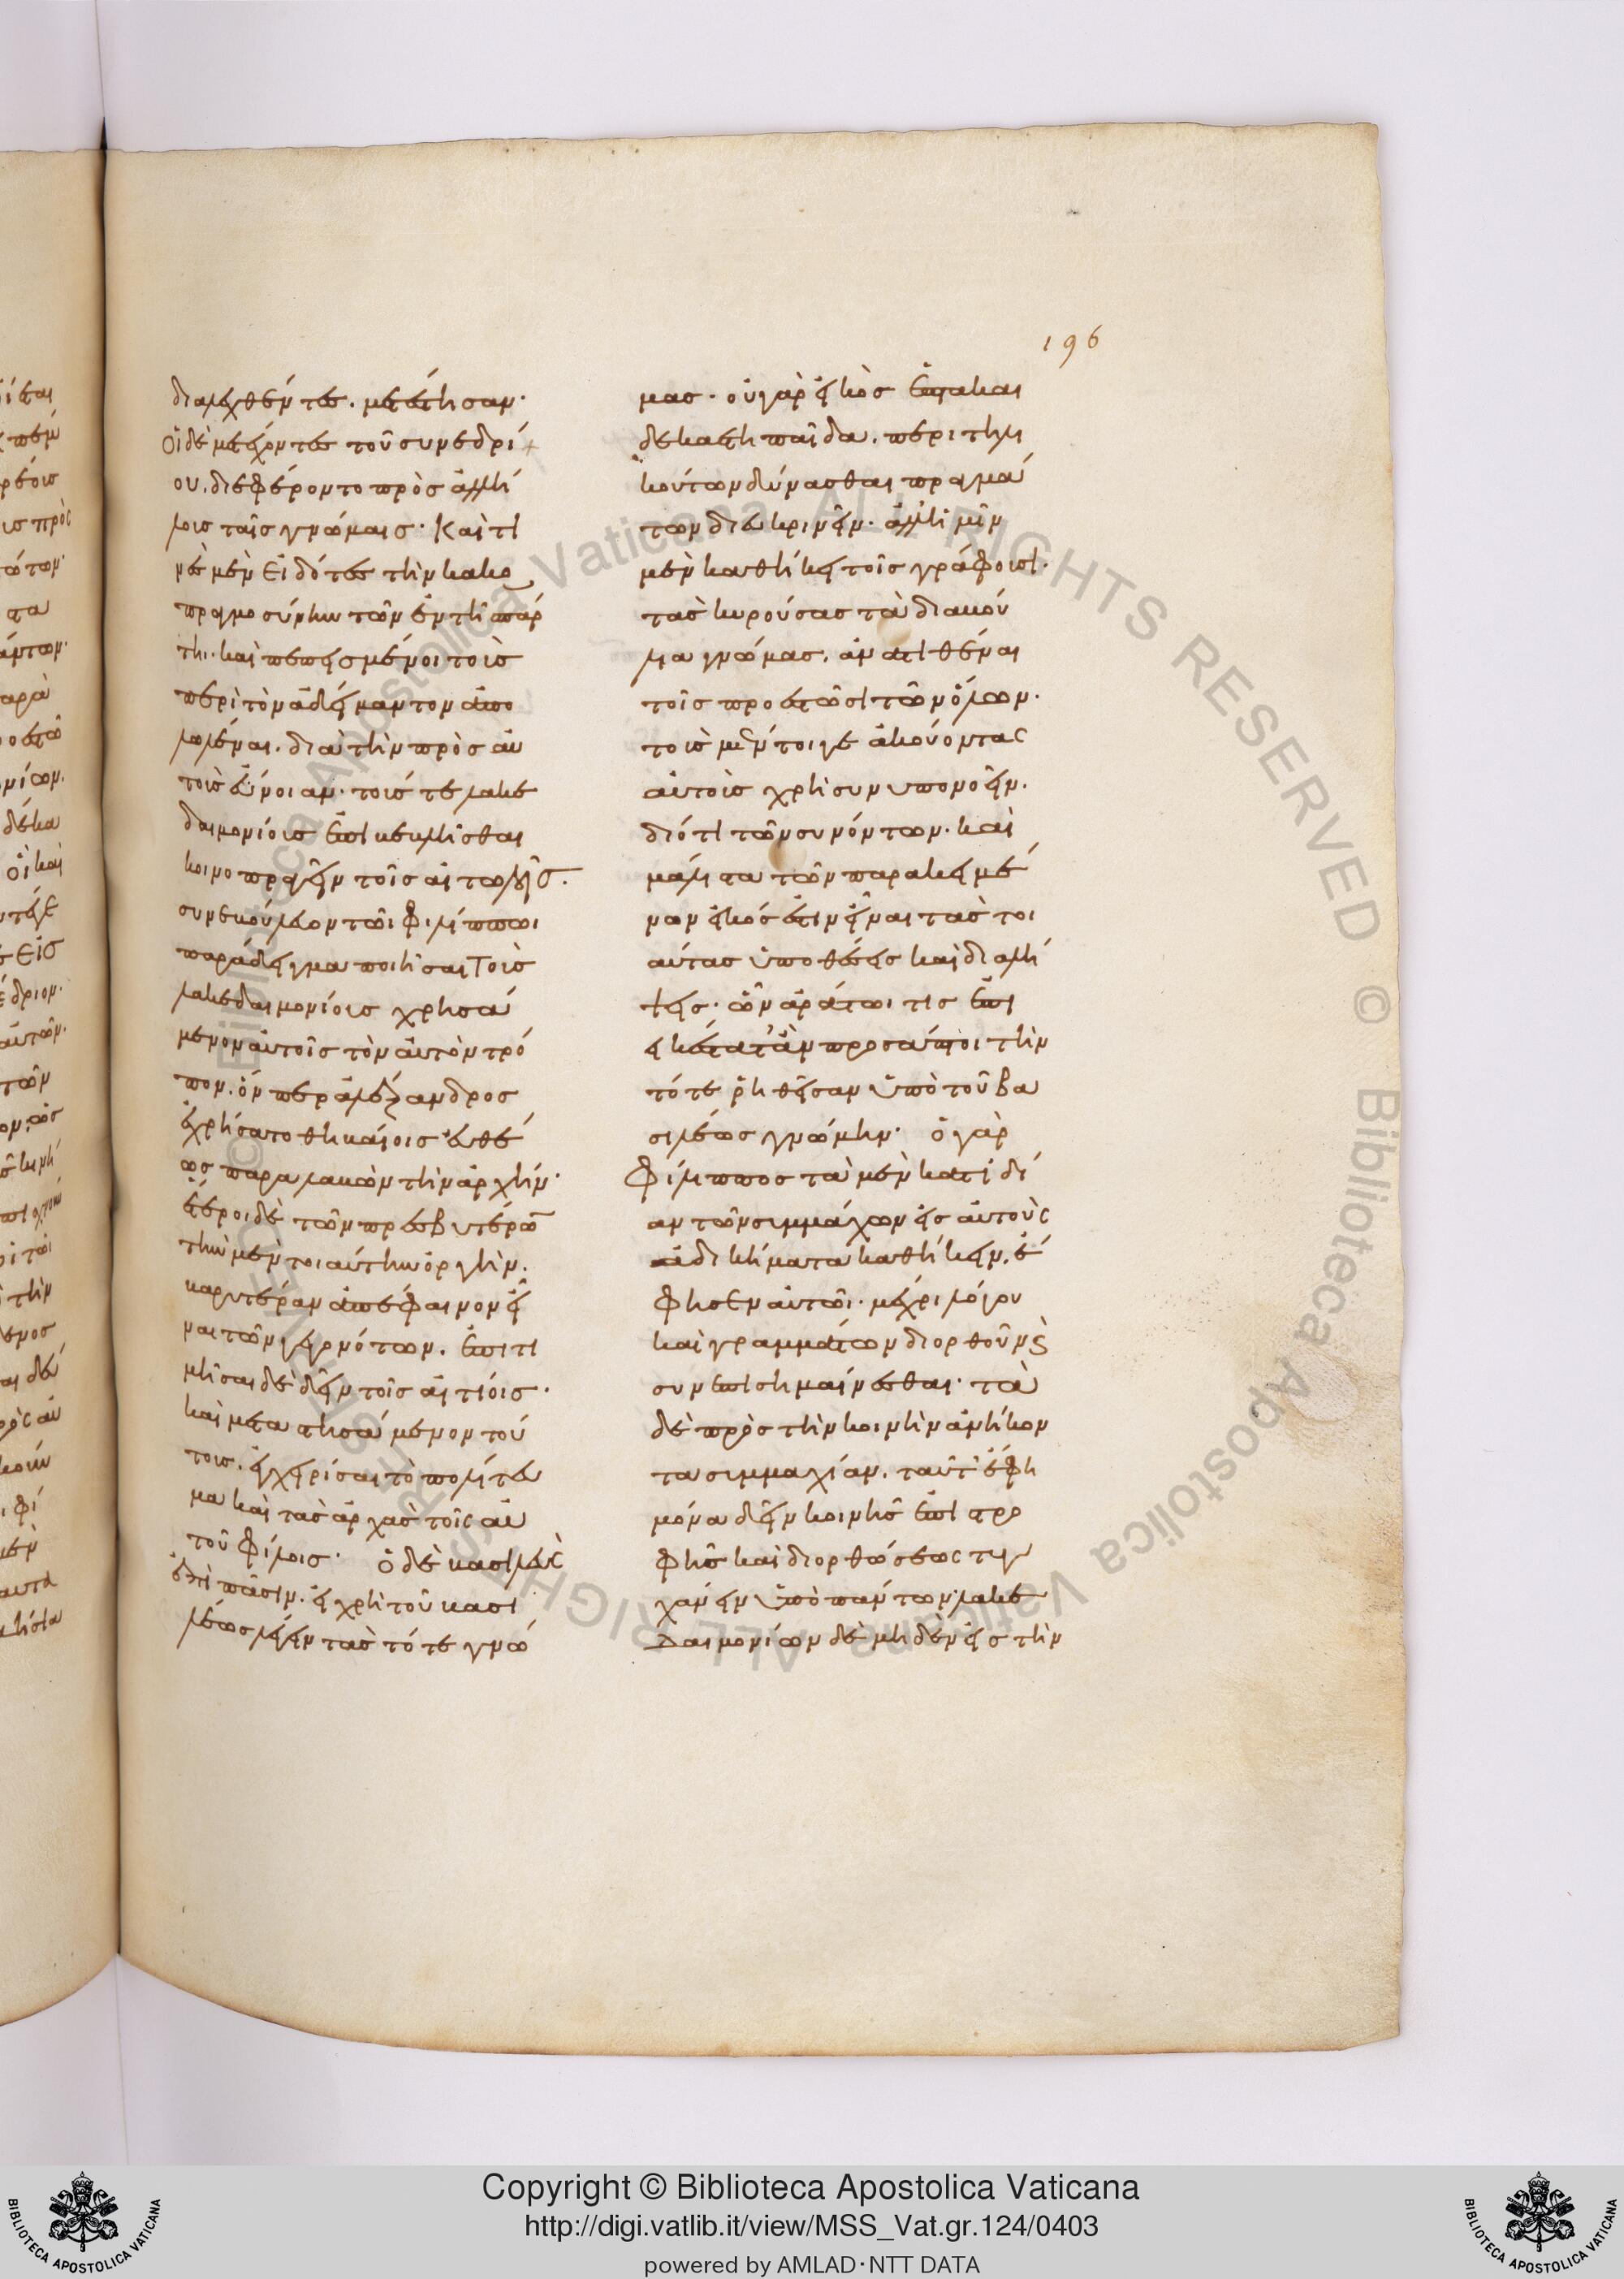 196
διαλεχθέντες. μετέστησαν·
οἱ δὲ μετέχοντες τοῦ συνεδρί
ου. διεφέροντο πρὸς ἀλλή
λοις ταῖς γνώμαις· καὶ τι
νὲς μὲν εἰδότες τὴν κακο
πραγμοσύνην τῶν ἐν τῆ σπάρ
τηι· καὶ πεπεισμένοι τοὺς
περὶ τὸν ἀδείμαντον ἀπο
λωλέναι. διὰ τὴν πρὸς αὐ
τοὺς εὔνοιαν· τούς τε λακε
δαιμονίους ἐπιβεβλῆσθαι
κοινοπραγεῖν τοῖς αἰτωλοῖς.
συνεβούλευον τῶι φιλίππωι
παράδειγμα ποιῆσαι τοὺς
λακεδαιμονίους χρησά
μενον αὐτοῖς τὸν αὐτὸν τρό
πον. ὅνπερ ἀλέξανδρος
ἐχρήσατο θηβαίοις εὐθέ
ως παραλαβὼν τὴν ἀρχήν·
ἕτεροι δὲ τῶν πρεσβυτέρω̅
τὴν μὲν τοιαύτην ὀργὴν.
βαρυτέραν ἀπέφαινον εἶ
ναι τῶν γεγονότων. ἐπιτι
μῆσαι δὲ δεῖν τοῖς αἰτίοις·
καὶ μεταστησάμενον τού
τους. ἐγχειρίσαι τὸ πολίτευ
μα καὶ τὰς ἀρχὰς τοῖς αὐ
τοῦ φίλοις· ὁ δὲ βασιλεὺς
ἐπὶ πᾶσιν. εἰ χρὴ τοῦ βασι
λέως λέγειν τὰς τότε γνώ
μας· οὐ γὰρ εἰκὸς ἑπτακαι
δεκαετῆ παῖδα. περὶ τηλι
κούτων δύνασθαι πραγμά
των διευκρινεῖν· ἀλλ' ἡμῖν
μὲν καθήκει τοῖς γράφουσι·
τὰς κυρούσας τὰ διαβού
λια γνώμας. ἀνατιθέναι
τοῖς προεστῶσι τῶν ὅλων·
τοὺς μέντοιγε ἀκούοντας
αὐτοὺς χρὴ συνυπονοεῖν.
διότι τῶν συνόντων· καὶ
μάλιστα τῶν παρακειμέ
νων εἰκός ἐστιν εἶναι τὰς τοι
αύτας ὑποθέσεις καὶ διαλή
ψεις· ὧν ἀράτωι τις ἐπι
εικέστατ' ἂν προσάπτοι τὴν
τότε ῥηθεῖσαν ὑπὸ τοῦ βα
σιλέως γνώμην· ὁ γὰρ
φίλιππος τὰ μὲν κατ' ἰδί
αν τῶν συμμάχων εἰς αὑτοὺς
ἀδικήματα καθήκειν. ἔ
φησεν αὐτῶι· μέχρι λόγου
καὶ γραμμάτων διορθοῦν κ(αὶ)
συνεπισημαίνεσθαι· τὰ
δὲ πρὸς τὴν κοινὴν ἀνήκον
τα συμμαχίαν. ταῦτ' ἔφη
μόνα δεῖν κοινῆς ἐπιστρο
φῆς καὶ διορθώσεως τυγ
χάνειν ὑπὸ πάντων· λακε
δαιμονίων δὲ μηδὲν εἰς τὴν
Copyright © Biblioteca Apostolica Vaticana
http://digi.vatlib.it/view/MSS_Vat.gr.124/0403
powered by AMLAD·NTT DATA